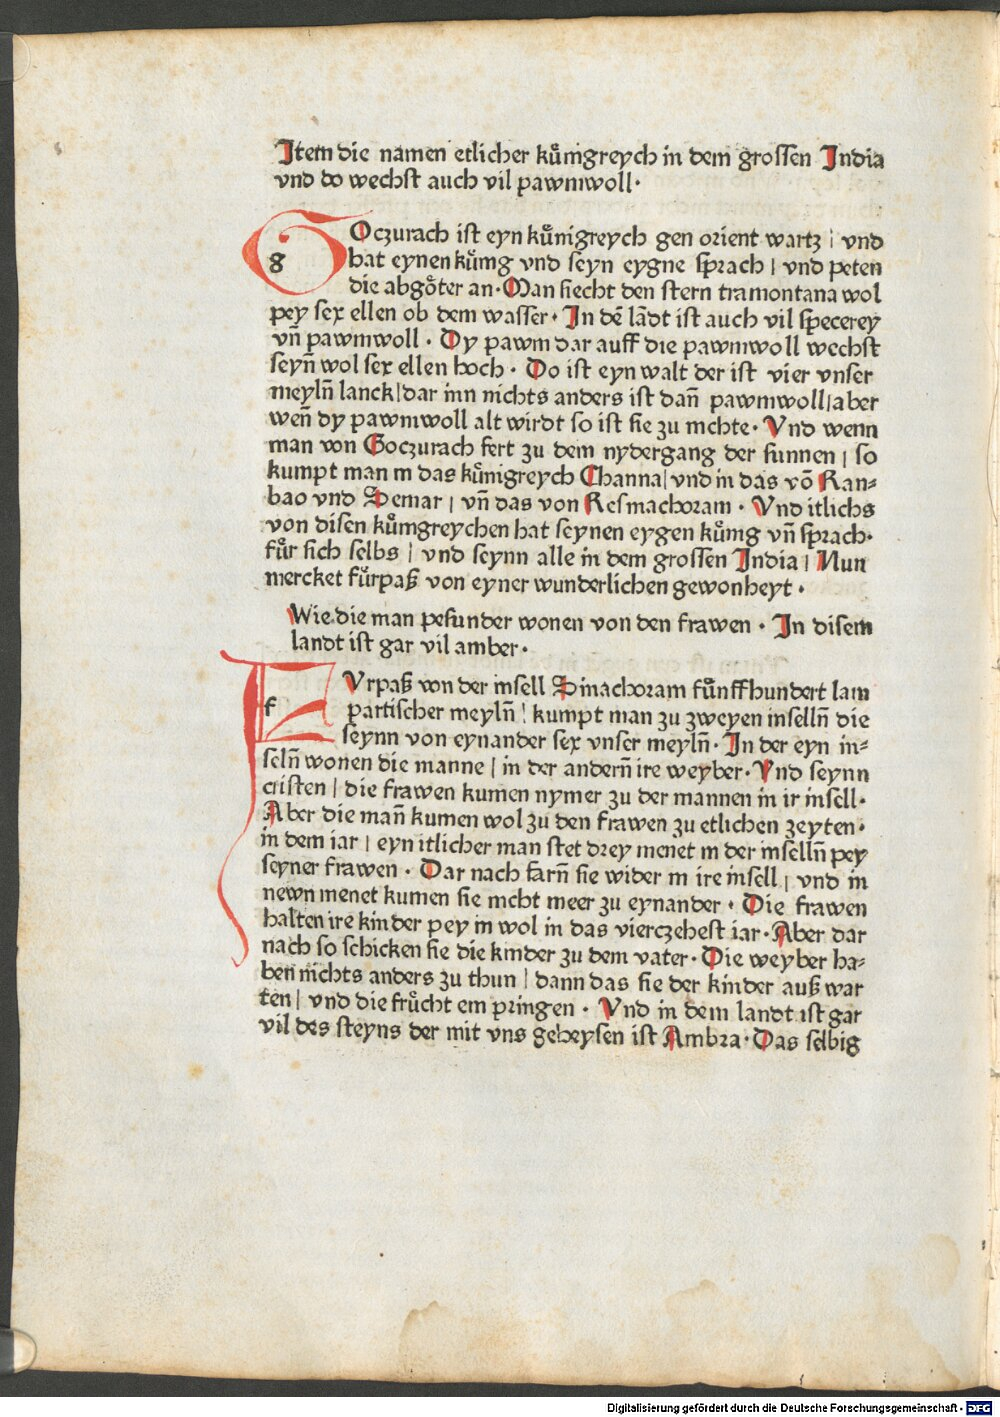 Item die namen etlicher kuͤnigreych in dem grossen India
vnd do wechst auch vil pawmwoll·
GOczurach ist eyn kuͤnigreych gen orient wartz / vnd
g
hat eynen kuͤnig vnd seyn eygne sprach / vnd peten
die abgoͤter an· Man siecht den stern tramontana wol
pey sex ellen ob dem wasser· In dē lādt ist auch vil specerey
vn̄ pawmwoll · Dy pawm dar auff die pawmwoll wechst
seyn̄ wol sex ellen hoch · Do ist eyn walt der ist vier vnser
meyln̄ lanck / dar inn nichts anders ist dan̄ pawmwoll / aber
wen̄ dy pawmwoll alt wirdt so ist sie zu nichte· Vnd wenn
man von Goczurach fert zu dem nydergang der sunnen / so
kumpt man in das kuͤnigreych Channa / vnd in das vō Ran⸗
bao vnd Semar / vn̄ das von Resmachoram · Vnd itlichs
von disen kuͤnigreychen hat seynen eygen kuͤnig vn̄ sprach·
fuͤr sich selbs / vnd seynn alle in dem grossen India / Nun
mercket fuͤrpaß von eyner wunderlichen gewonheyt ·
Wie die man pesunder wonen von den frawen · In disem
landt ist gar vil amber·
FVrpaß von der insell Sinachoram fuͤnffhundert lam
f
partischer meyln̄ / kumpt man zu zweyen inselln̄ die
seynn von eynander sex vnser meyln̄· In der eyn in⸗
seln̄ wonen die manne / in der andern̄ ire weyber· Vnd seynn
cristen / die frawen kumen nymer zu der mannen in ir insell·
Aber die man̄ kumen wol zu den frawen zu etlichen zeyten·
in dem iar / eyn itlicher man stet drey menet in der inselln̄ pey
seyner frawen · Dar nach farn̄ sie wider in ire insell / vnd in
newn menet kumen sie nicht meer zu eynander · Die frawen
halten ire kinder pey in wol in das vierczehest iar· Aber dar
nach so schicken sie die kinder zu dem vater· Die weyber ha⸗
ben nichts anders zu thun / dann das sie der kinder auß war
ten / vnd die fruͤcht ein pringen · Vnd in dem landt ist gar
vil des steyns der mit vns geheysen ist Ambra· Das selbig
Digitalisierung gefördert durch die Deutsche Forschungsgemeinschaft - DFG